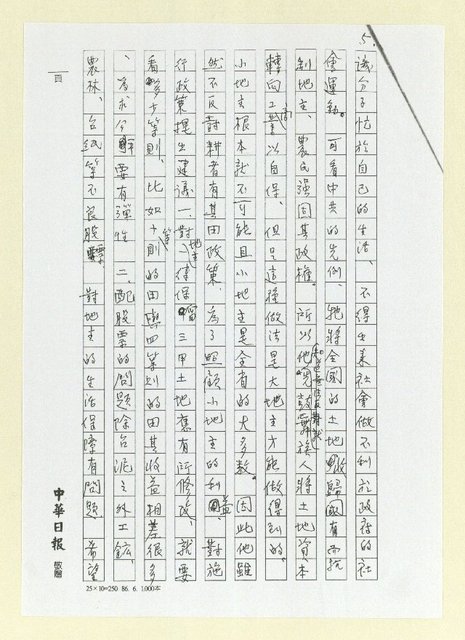 5.
識分子忙於自己的生活、不得生表社會做不利於政府的社
會運動。可看中共的先例、牠將全國的土地收歸國有而抗
制地主、農民強固其政權。所以他鼓舞族人將土地資本
轉向工業以自保、但是這種做法是大地主才能做得到的。
小地主根本就不可能且小地主是全省的大多數。因此他雖
然不反對耕者有其田政策、為了照顧小地主的利益、對施
行政策提出建議一、對地主一律保留三甲土地舊有所修改、就要
看多少等則、比如十等則的田與四等則的田其收益相差很多
、省求分明要有彈性 二、配股票的問題除台泥之外工鑛、
農林、台紙等不良股票、對地主的生活保障有問題 希望
頁
中華日報 敬贈
25×10=250 86. 6. 1,000本